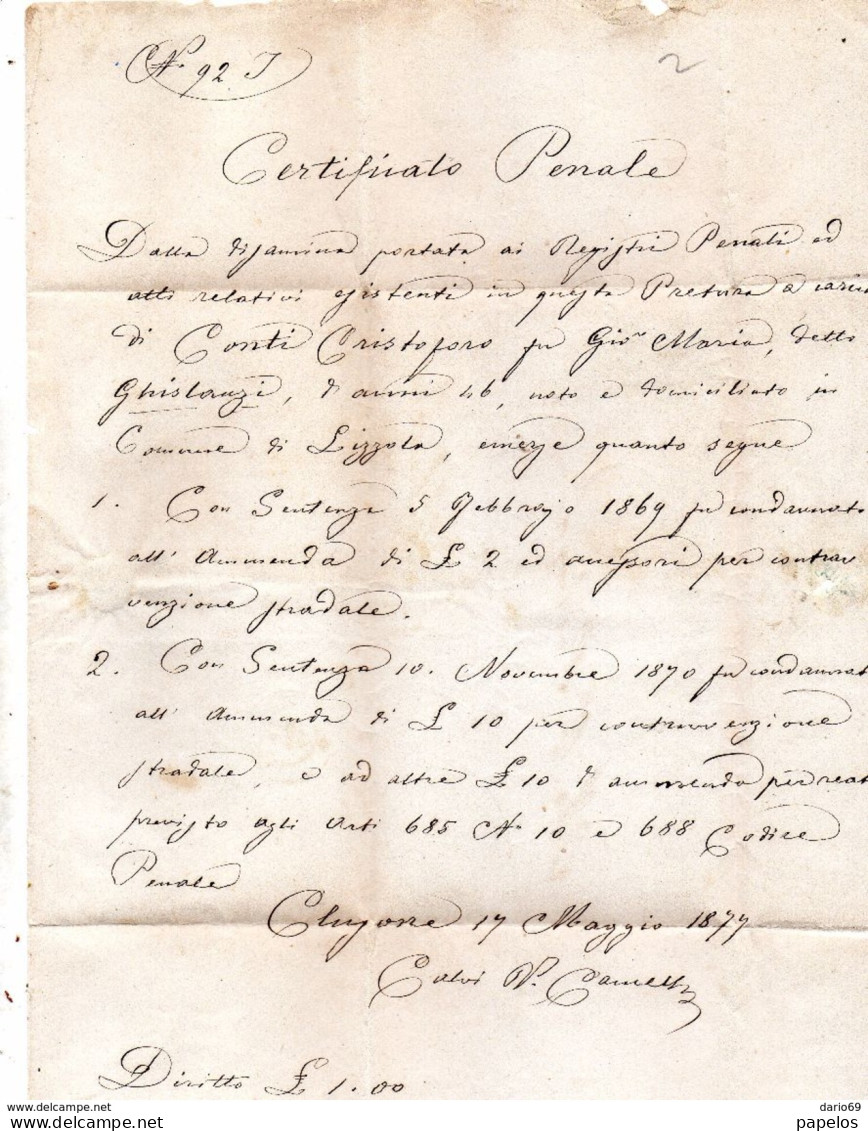 N.° 92 I
2
Certificato Penale
Dalla disamina portata ai Registri Penali ed
atti relativi esistenti in questa Pretura a caric
di Conti Cristoforo fu Gio. Maria, detto
Ghislanzi, d'anni 46, nato e domiciliato in
Comune di Lizzola, emerge quanto segue
1. Con Sentenza 5 Febbrajo 1869 fu condannato
all'Ammenda di £ 2 ed accessori per contrav
venzione stradale.
2. Con Sentenza 10. Novembre 1870 fu condannat
all'Ammenda di £ 10 per contravvenzione
stradale, e ad altre £ 10 d'ammenda per reat
previsto agli Arti 685 N.° 10 e 688 Codice
Penale
Clusone 17 Maggio 1877
Calvi
Diritto £ 1.00
dario69
www.delcampe.net
papelos